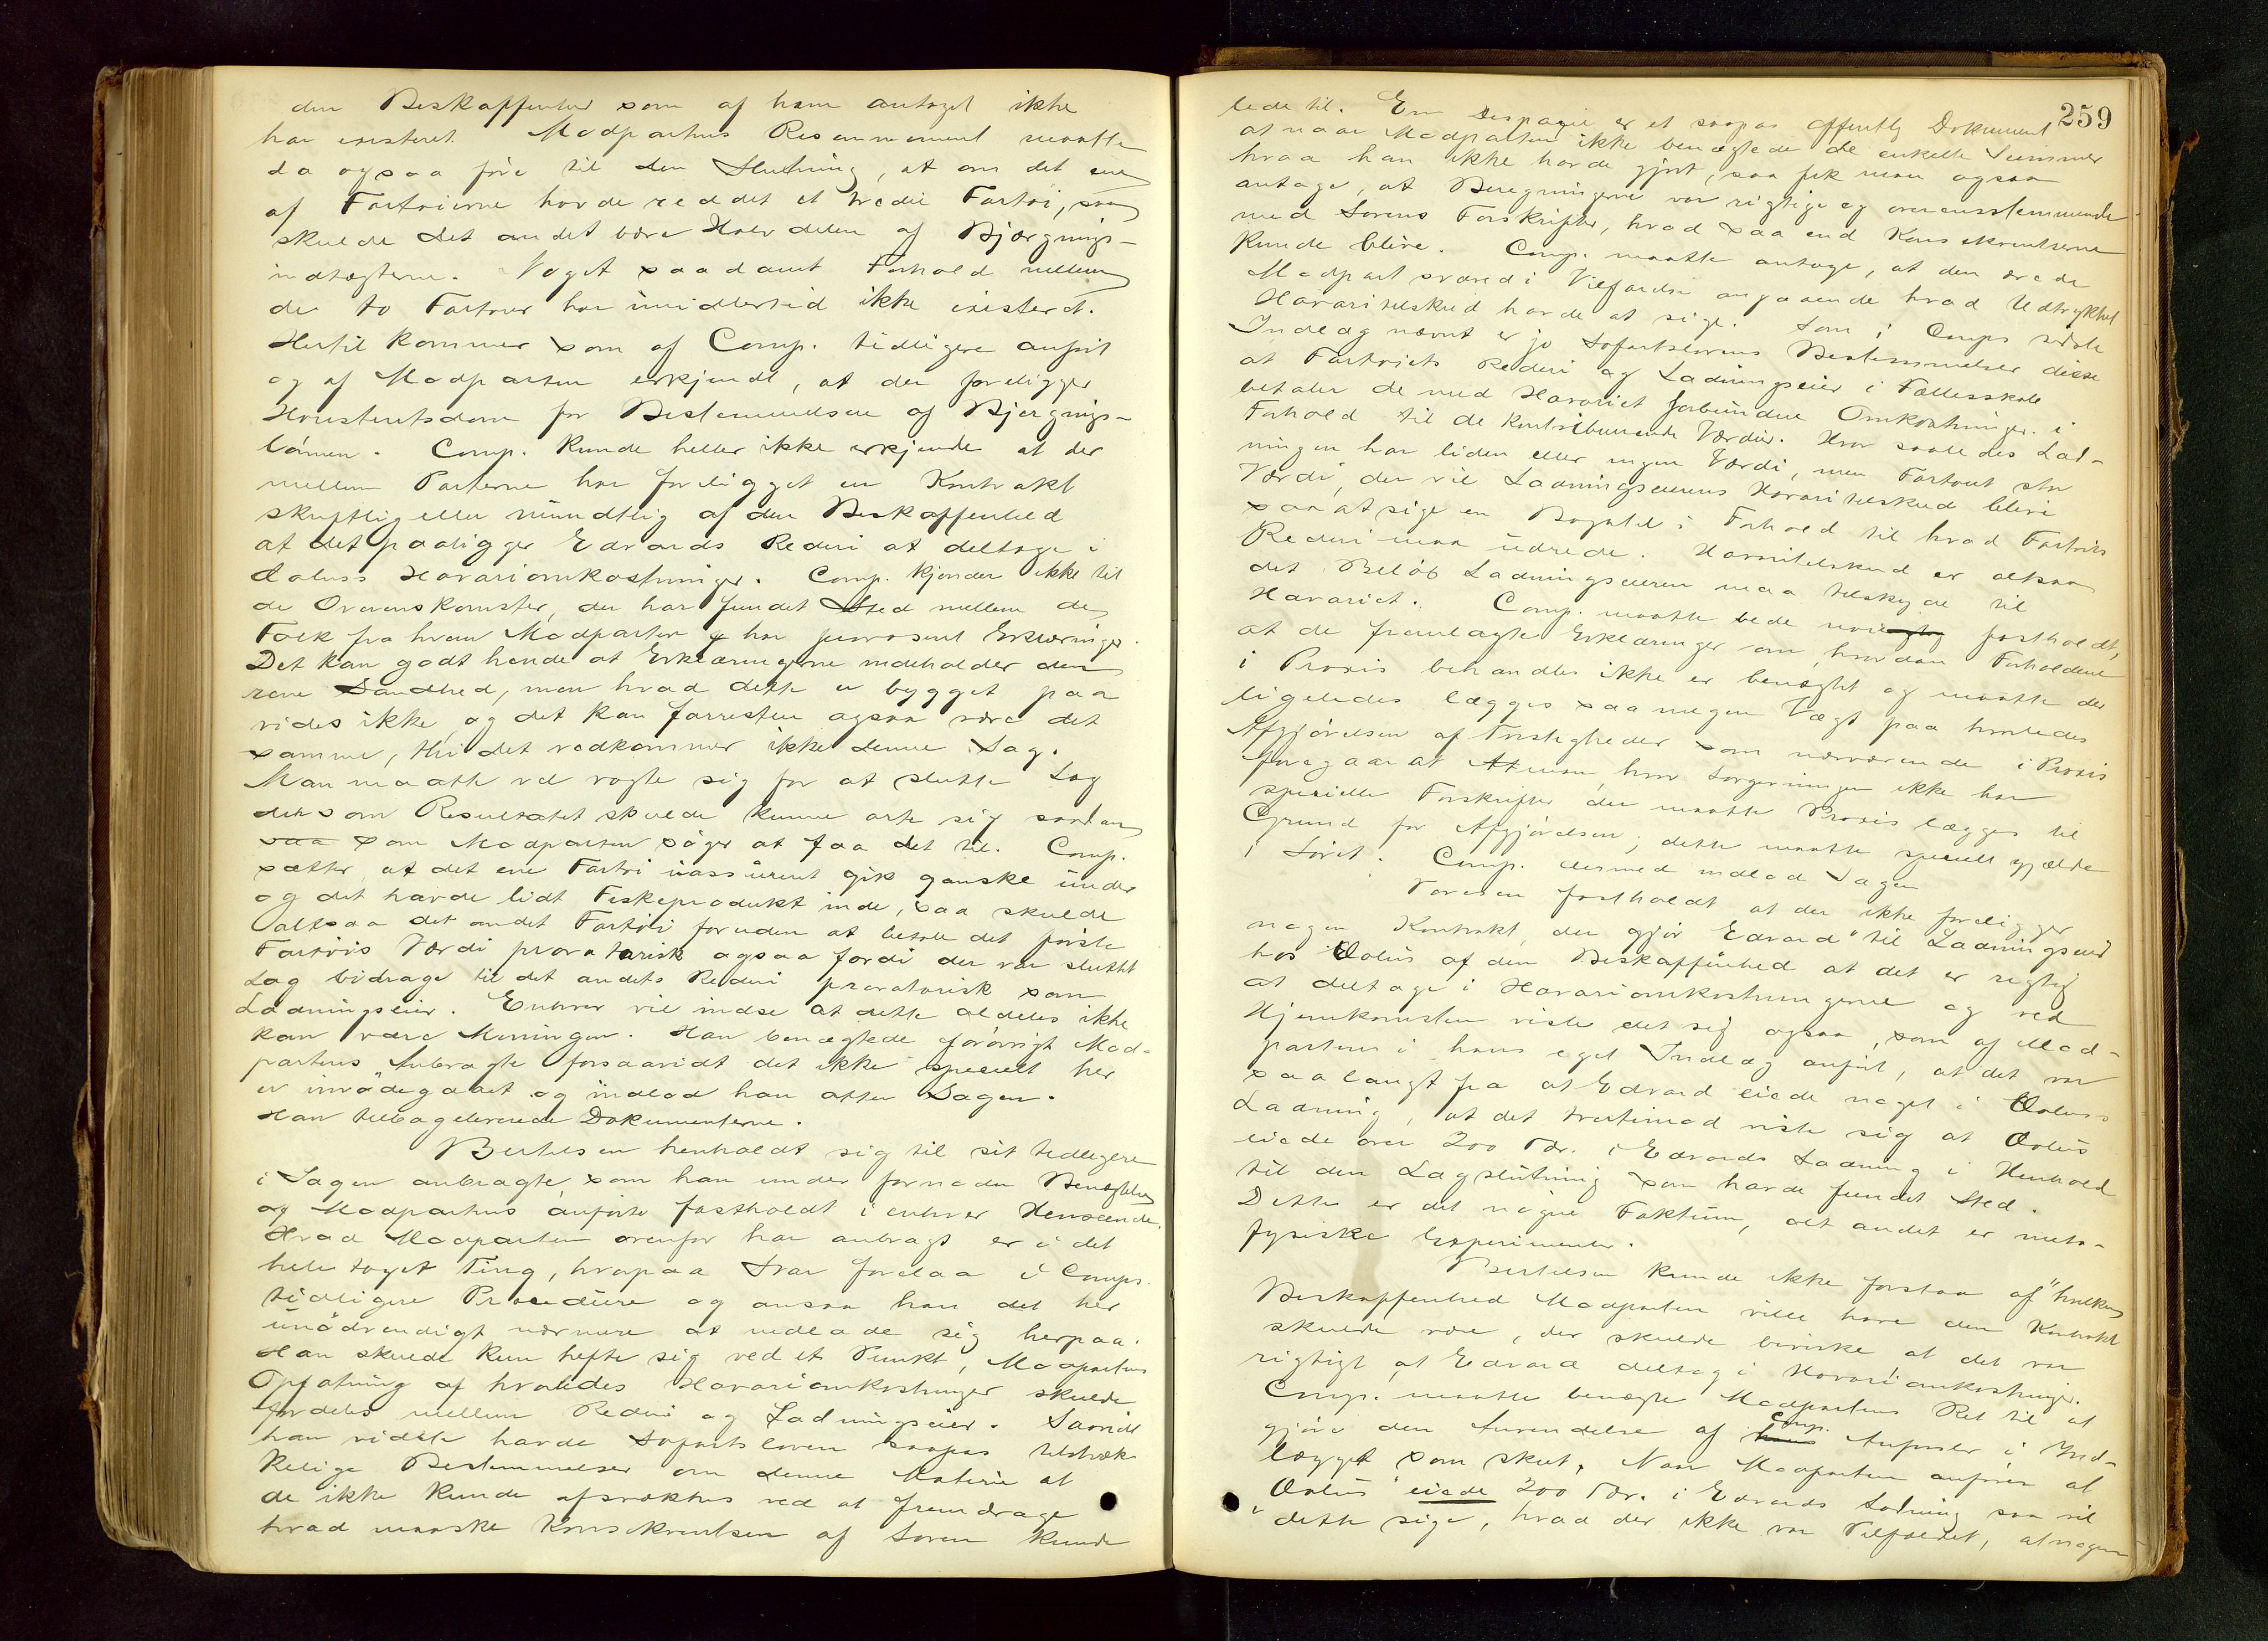 den Beskaffenhed som af ham antaget ikke
har existeret. Modpartens Resonnement maatte
da ogsaa føre til den Slutning, at om det ene
af Fartøierne havde reddet et tredie Fartøi, saa
skulde det andet bære Halvdelen af Bjærgnings-
indtægterne. Noget saadant Forhold mellem
de to Fartøier har imidlertid ikke existeret.
Hertil kommer som af Comp. tidligere anført
og af Modparten erkjendt, at der foreligger
Høiesteretsdom for Bestemmelsen af Bjergnings-
lønnen. Comp. kunde heller ikke erkjende at der
mellem Parterne har foreligget en Kontrakt
skriftlig eller mundtlig af den Beskaffenhed
at det paaligger Edvards Rederi at deltage i
Æolus's Havariomkostninger. Comp. kjender ikke til
de Overenskomster, der har fundet Sted mellem de
Folk fra hvem Modparten har præsteret Erklæringer.
Det kan godt hende at Erklæringerne indeholder den
rene Sandhed, men hvad dette er bygget paa
vides ikke, og det kan forresten ogsaa være det
samme, thi det vedkommer ikke denne Sag.
Man maatte vel vogte sig for at slutte Lag
dersom Resultatet skulde kunne arte sig saadan
saa som Modparten søger at faa det til. Comp.
sætter at det ene Fartøi uassureret gik ganske under
og det havde lidt Fiskeprodukt inde, saa skulde
altsaa det andet Fartøi foruden at betale det første
Fartøis Værdi proratarisk ogsaa fordi der var sluttet
Lag bidrage til det andets Rederi proratarisk som
Ladningseier. Enhver vil indse at dette aldeles ikke
kan være Meningen. Han benægtede forøvrigt Mod-
partens Anbragte forsaavidt det ikke specielt her
er imødegaaet og indlod han atter Sagen.
Han tilbageleverede Dokumenterne.
Bertelsen henholdt sig til sit tidligere
i Sagen anbragte, som han under fornøden Benægtelse
og Modpartens anførte fastholdt i enhver Henseende.
Hvad Modparten ovenfor har anbragt er i det
hele taget Ting, hvorpaa Svar forelaa i Comps.
tidligere Procedure og ansaa han det her
unødvendigt nærmere at indlade sig herpaa.
Han skulde kun hefte sig ved et Punkt, Modpartens
Opfatning af hvorledes Havariomkostninger skulde
fordeles mellem Rederi og Ladningseier. Saavidt
han vidste havde Søfartsloven saapas tilstræk-
kelige Bestemmelser om denne Materie at
de ikke kunde afsvækkes ved at fremdrage
hvad maaske Konsekventsen af Loven kunde
259
lede til. En Dispache er et saapas offentlig Dokument,
at naar Modparten ikke benægtede de enkelte Summer
hvad han ikke havde gjort, saa fik man ogsaa
antage, at Beregningerne var rigtige og overensstemmende
med Lovens Forskrifter, hvad saa end Konsekventserne
kunde blive. Comp. maatte antage, at den ærede
Modpart svæved i Vilfarelse angaaende hvad Udtrykket
Havaritilskud havde at sige. Som i Comps sidste
Indlæg nævnt er jo Søfartslovens Bestemmelser disse
at Fartøiets Rederi og Ladningseier i Fællesskab
betaler de med Havariet forbundne Omkostninger i
Forhold til de kontribuerende Værdier. Hvor saaledes Lad-
ningen har liden eller ingen Værdi, men Fartøiet stor
Værdi, der vil Ladningseierens Havaritilskud blive
saa at sige en Bagatel i Forhold til hvad Fartøiets
Rederi maa udrede. Havaritilskud er altsaa
det Beløb Ladningseieren maa tilskyde til
Havariet. Comp. maatte bede fastholdt,
at de fremlagte Erklæringer om, hvordan Forholdene
i Praxis behandles ikke er benægtet og maatte der
ligeledes lægges saa megen Vægt paa hvorledes
Afgjørelsen af Tvistigheder som nærværende i Praxis
foregaar at Atman, hvor Lovgivningen ikke har
specielle Forskrifter, der maatte Praxis lægges til
Grund for Afgjørelsen; dette maatte specielt gjælde
i Søret. Comp. dermed indlod Sagen
fastholdt at der ikke foreligger
nogen Kontrakt, der gjør "Edvard" til Ladningseier
hos Æolus af den Beskaffenhed at det er rigtig
at deltage i Havariomkostningerne og ved
Hjemkomsten viste det sig ogsaa, som af Mod-
parten i hans eget Indlæg anført, at det var
saa langt fra at Edvard eiede noget i Æolus's
Ladning, at det tvertimod viste sig at Æolus
eiede over 200 Tdr. i Edvards Ladning i Henhold
til den Lagslutning som havde fundet Sted.
Dette er det nøgne Faktum, alt andet er meta-
fysiske Experimenter.
Bertelsen kunde ikke forstaa af "hvilken
Beskaffenhed Modparten vilde have den Kontrakt
skulde være, der skulde bevirke, at det var
rigtigt, at Edvard deltog i Havariomkostninger.
Comp. maatte benægte Modpartens Ret til at
gjøre den Anvendelse af hans Comp. Anførsler i Ind-
lægget som sket. Naar Modparten anfører at
Æolus "eiede 200 Tdr. i Edvards Ladning saa vil
dette sige, hvad der ikke var Tilfældet, at nogen